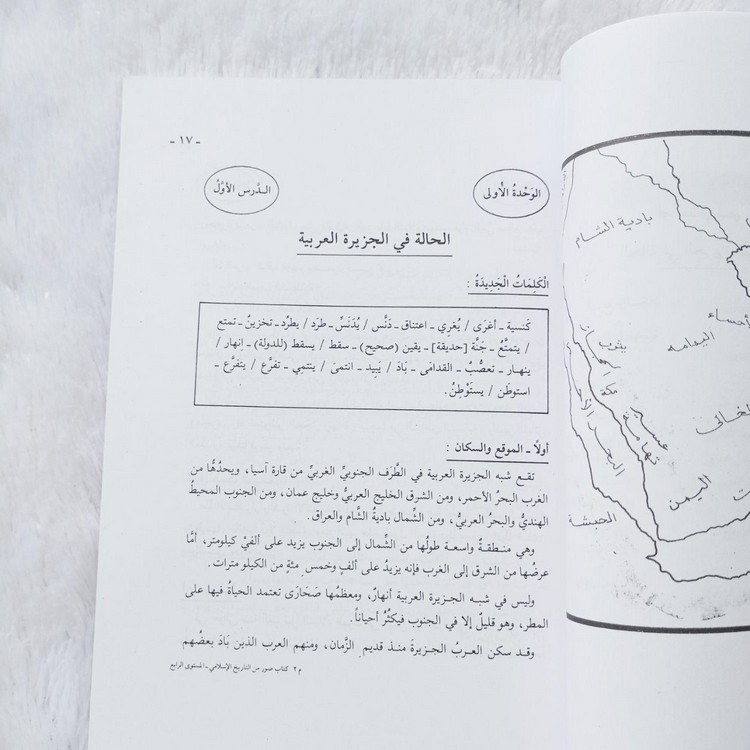 - ١٧ -
الوَحْدةُ الأُولى
الـدَّرس الأوَّلُ
الحالة في الجزيرة العربية
الْكَلِمَاتُ الْجَدِيدَةُ :
كَنسية ـ أغرَى / يُغرِي ـ اعتناق ـ دَنَّس / يُدَنِّسُ ـ طرَد / يطرُد ـ تخزينٌ ـ تمتع
/ يتمتَّعُ ـ جَنَّة [حديقة] ـ يقين (صحيح) ـ سقط / يسقط (للدولة) ـ إنهار /
ينهـار ـ تعصُّبٌ ـ القدامَى ـ بَادَ / يَبِيد ـ انتمىٰ / ينتمِي ـ تفرَّع / يتفرَّع ـ
استوطَن / يستَوْطِنُ .
أولاً ـ الموقع والسكان :
تقـع شبه الجزيرة العربية في الطُرَف الجنوبيِّ الغربيِّ من قارة آسيا، ويحدُّهـا من
الغرب البحرُ الأحمر، ومن الشرق الخليج العربيُّ وخليج عمان، ومن الجنوب المحيطُ
الهنديُّ والبحرُ العربيُّ، ومن الشِّمال باديةُ الشَّام والعراق.
وهي منـطقـةٌ واسعـة طولُها من الشِّمال إلى الجنوب يزيد على ألفَيْ كيلومتر، أمَّا
عرضُها من الشرق إلى الغرب فإنه يزيدُ على ألفٍ وخمسِ مئةٍ من الكيلو مترات.
وليس في شبـه الجـزيرة العربية أنهارٌ، ومعظمُها صَحَارَى تعتمد الحياةُ فيها على
المطر، وهو قليلٌ إلا في الجنوب فيكثُرُ أحياناً.
وقـد سكن العـربُ الجـزيرةَ منـذ قديمِ الزَّمان، ومنهم العرب الذين بَادَ بعضُهم
م٢ كتاب صور من التاريخ الإسلامي ـ المستوى الرابع
بادية الشـام
الأحساء
اليمامه
يثرب
مكة
تهامة
عسير
البحر الأحمر
الخالي
اليمن
الحبشة